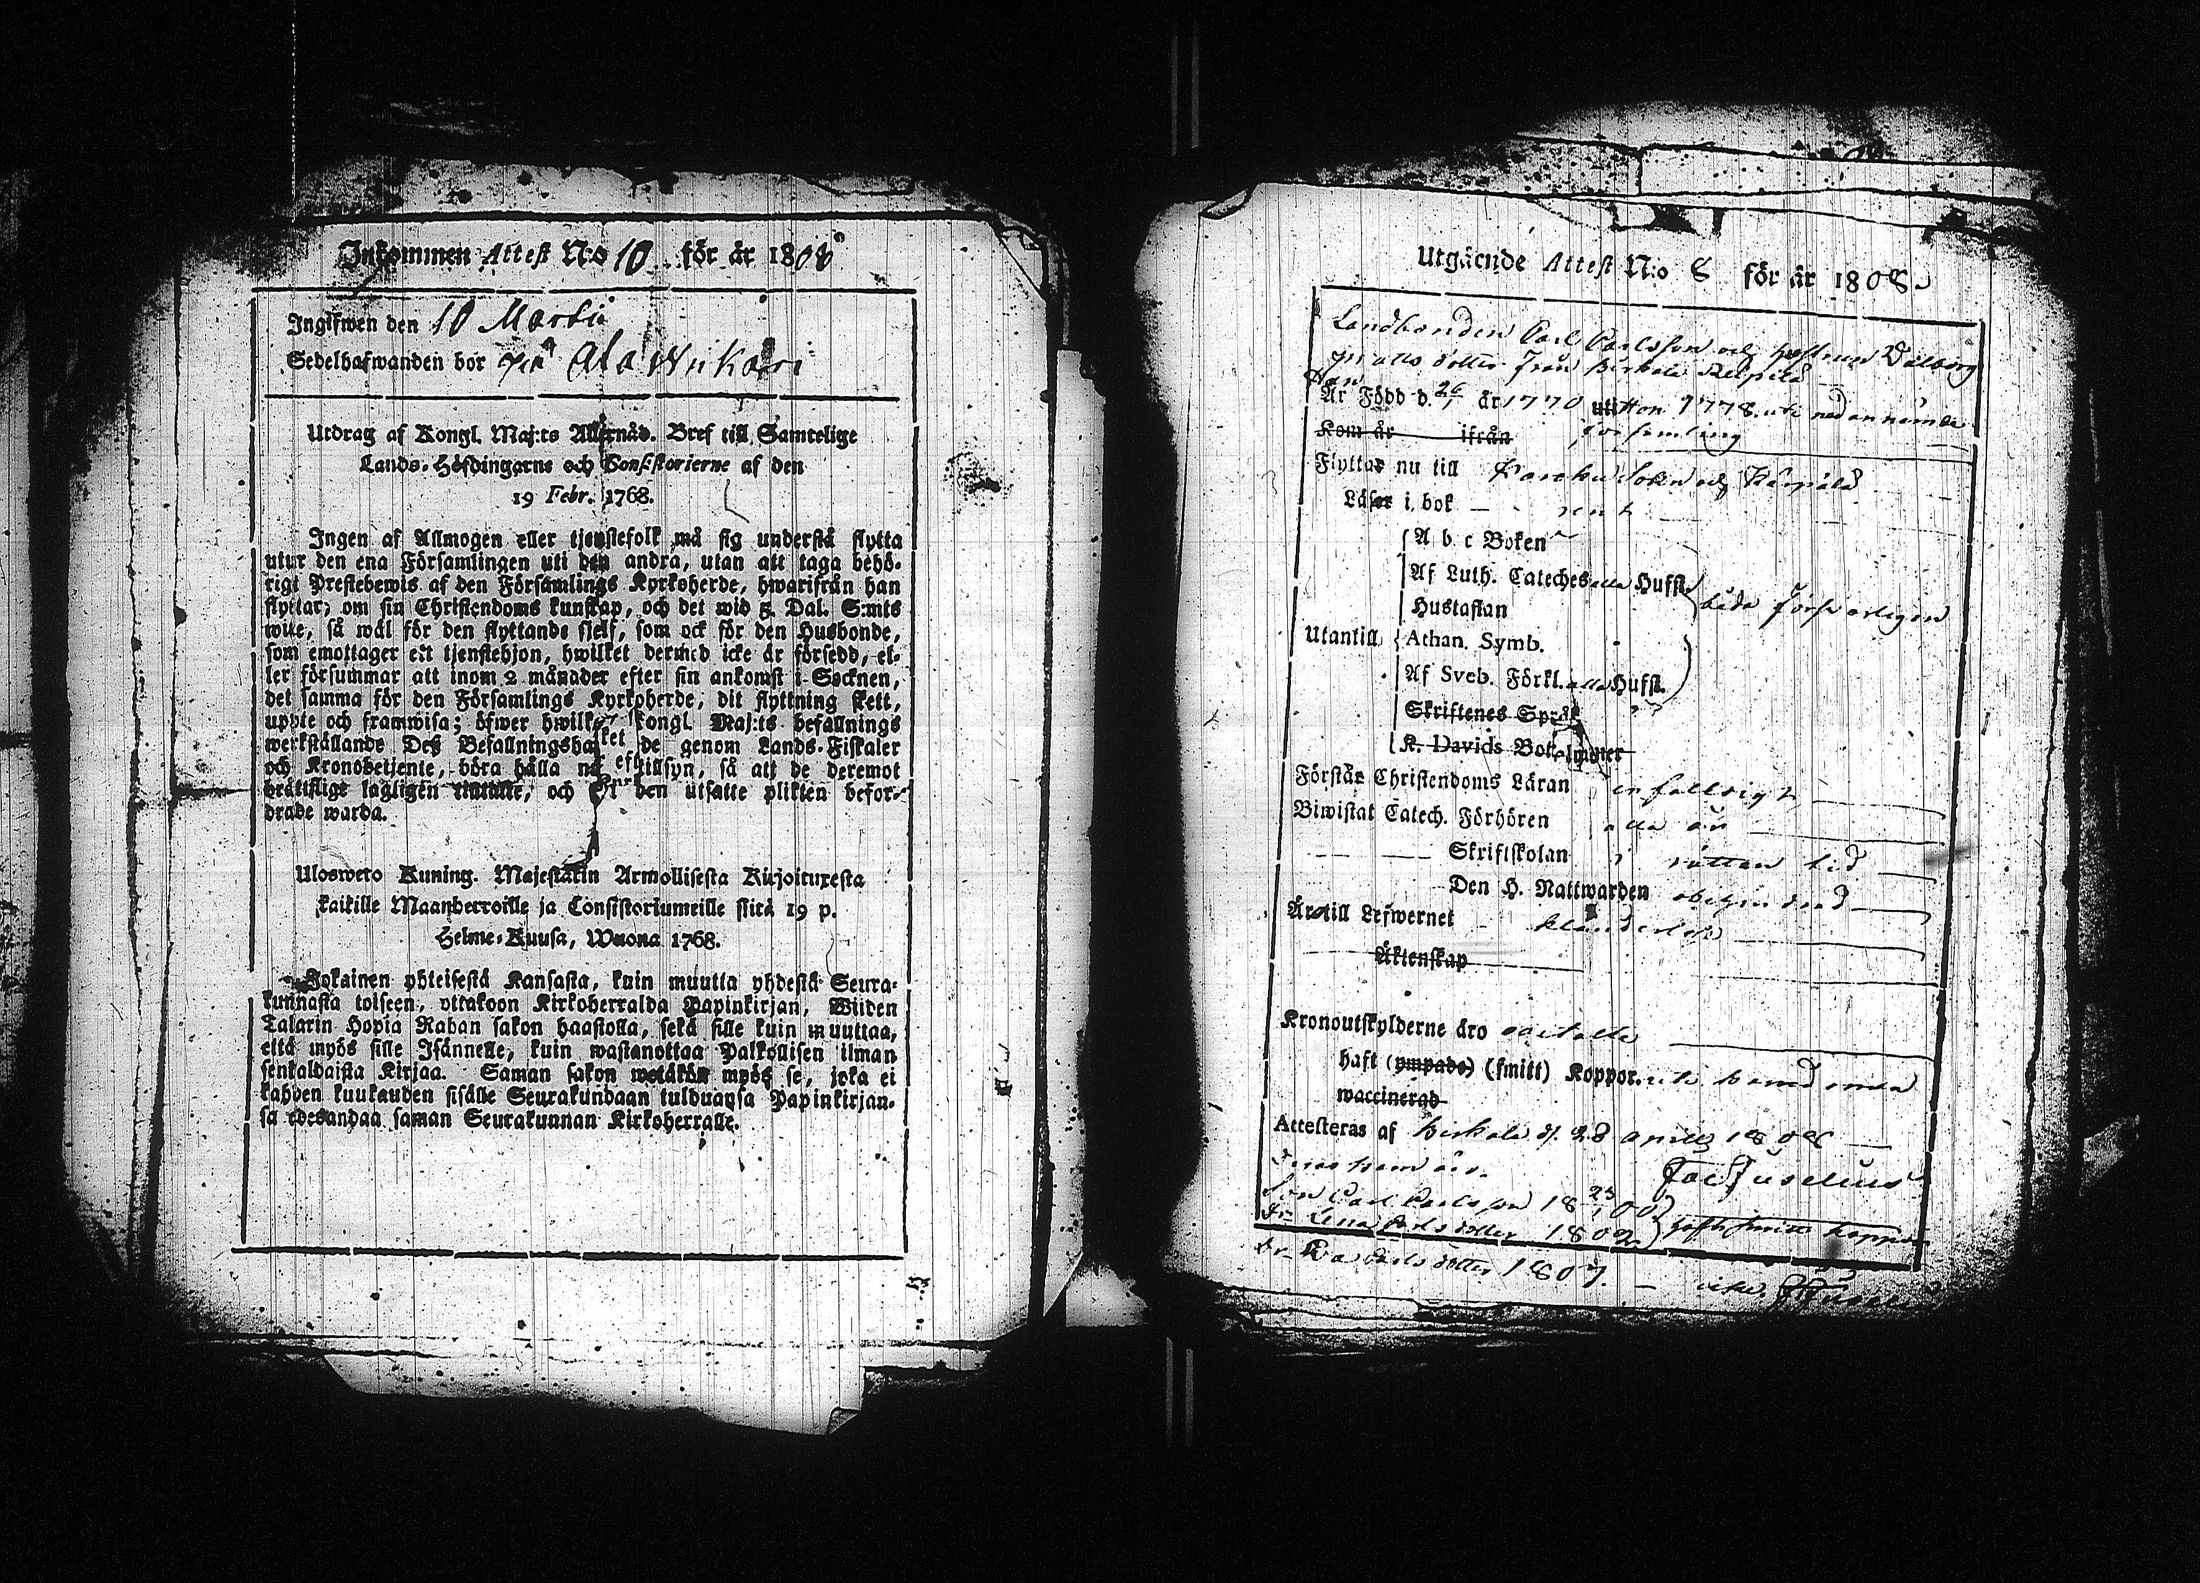 Inkommen Attest N:o 10 för år 1808
Ingifwen den 10 Martii
Sedelhafwanden bor på Alawnikari
Utdrag af Kongl. Maj:ts Allernåd. Bref till Samtelige
Lands-Höfdingarne och Consistorierne af den
19 Febr. 1768.
Ingen af Allmogen eller tjenstefolk må sig understå flytta
utur den ena Församlingen uti den andra, utan att taga behö-
rigt Prestebewis af den Församlings Kyrkoherde, hwarifrån han
flyttar, om sin Christendoms kunskap, och det wid 5 Dal. S:mts
wite, så wäl för den flyttande sjelf, som ock för den Husbonde,
som emottager ett tjenstehjon, hwilket dermed icke är försedd, el-
ler försummar att inom 2 månader efter sin ankomst i Socknen,
det samma för den Församlings Kyrkoherde, dit flyttning skett,
uppte och framwisa; öfwer hwilket Kongl. Maj:ts befallnings
werkställande Deß Befallningshafwande genom Lands-Fiskaler
och Kronobetjente, böra hålla noga eftertillsyn, så att de deremot
bråttsligt lagligen och den utsatte plikten befor-
drade warda.
Uloswето Kuning. Majestätin Armollisesta Kirjoituxesta
kaikille Maanherroille ja Consistoriumeille siitä 19 p.
Helme-Kuusa, Wuona 1768.
Jokainen yhteisestä Kansasta, kuin muutta yhdestä Seura-
kunnasta toiseen, ottakoon Kirkoherralda Papinkirjan, Wiiden
Talarin Hopia Rahan sakon haastolla, sekä sille kuin muuttaa,
että myös sille Isännelle, kuin wastanottaa Palkollisen ilman
senkaldaista Kirjaa. Saman sakon wetäkön myös se, joka ei
kahden kuukauden sisälle Seurakundaan tulduansa Papinkirjan-
sa edesandaa saman Seurakunnan Kirkoherralle.
Utgående Attest N:o 8 för år 1808
Landbonden Carl Carlsson och hustrun Walborg
dotter från Birkala
Han
Är Född d. 26/1 år 1770 Hon 1778. uti nedannämde
Kom år ifrån församling
Flyttar nu till Socken och
Läser i bok rent
A b c Boken
Af Luth. Cateches alla Hufst.
Hustaflan båda försvarligen
Utantill Athan. Symb.
Af Sveb. Förkl. alla Hufst.
Skriftenes Språk
K. Davids Bot
Förstår Christendoms Läran enfaldigt
Biwistat Catech. Förhören alla år
Skriftskolan i rättan tid
Den H. Nattwarden
Äro till Lefwernet klanderlöse
Äktenskap
Kronoutskylderne äro betalte
haft (ympade) (smitt) Koppor
waccinerad
Attesteras af Birkala d. 28 April 1808
deras barn äro
Son Carl Carlsson 18 23/1 00
Dr Lena Carlsdotter 1802 haft smitt koppor
Dr Eva Carlsdotter 1807